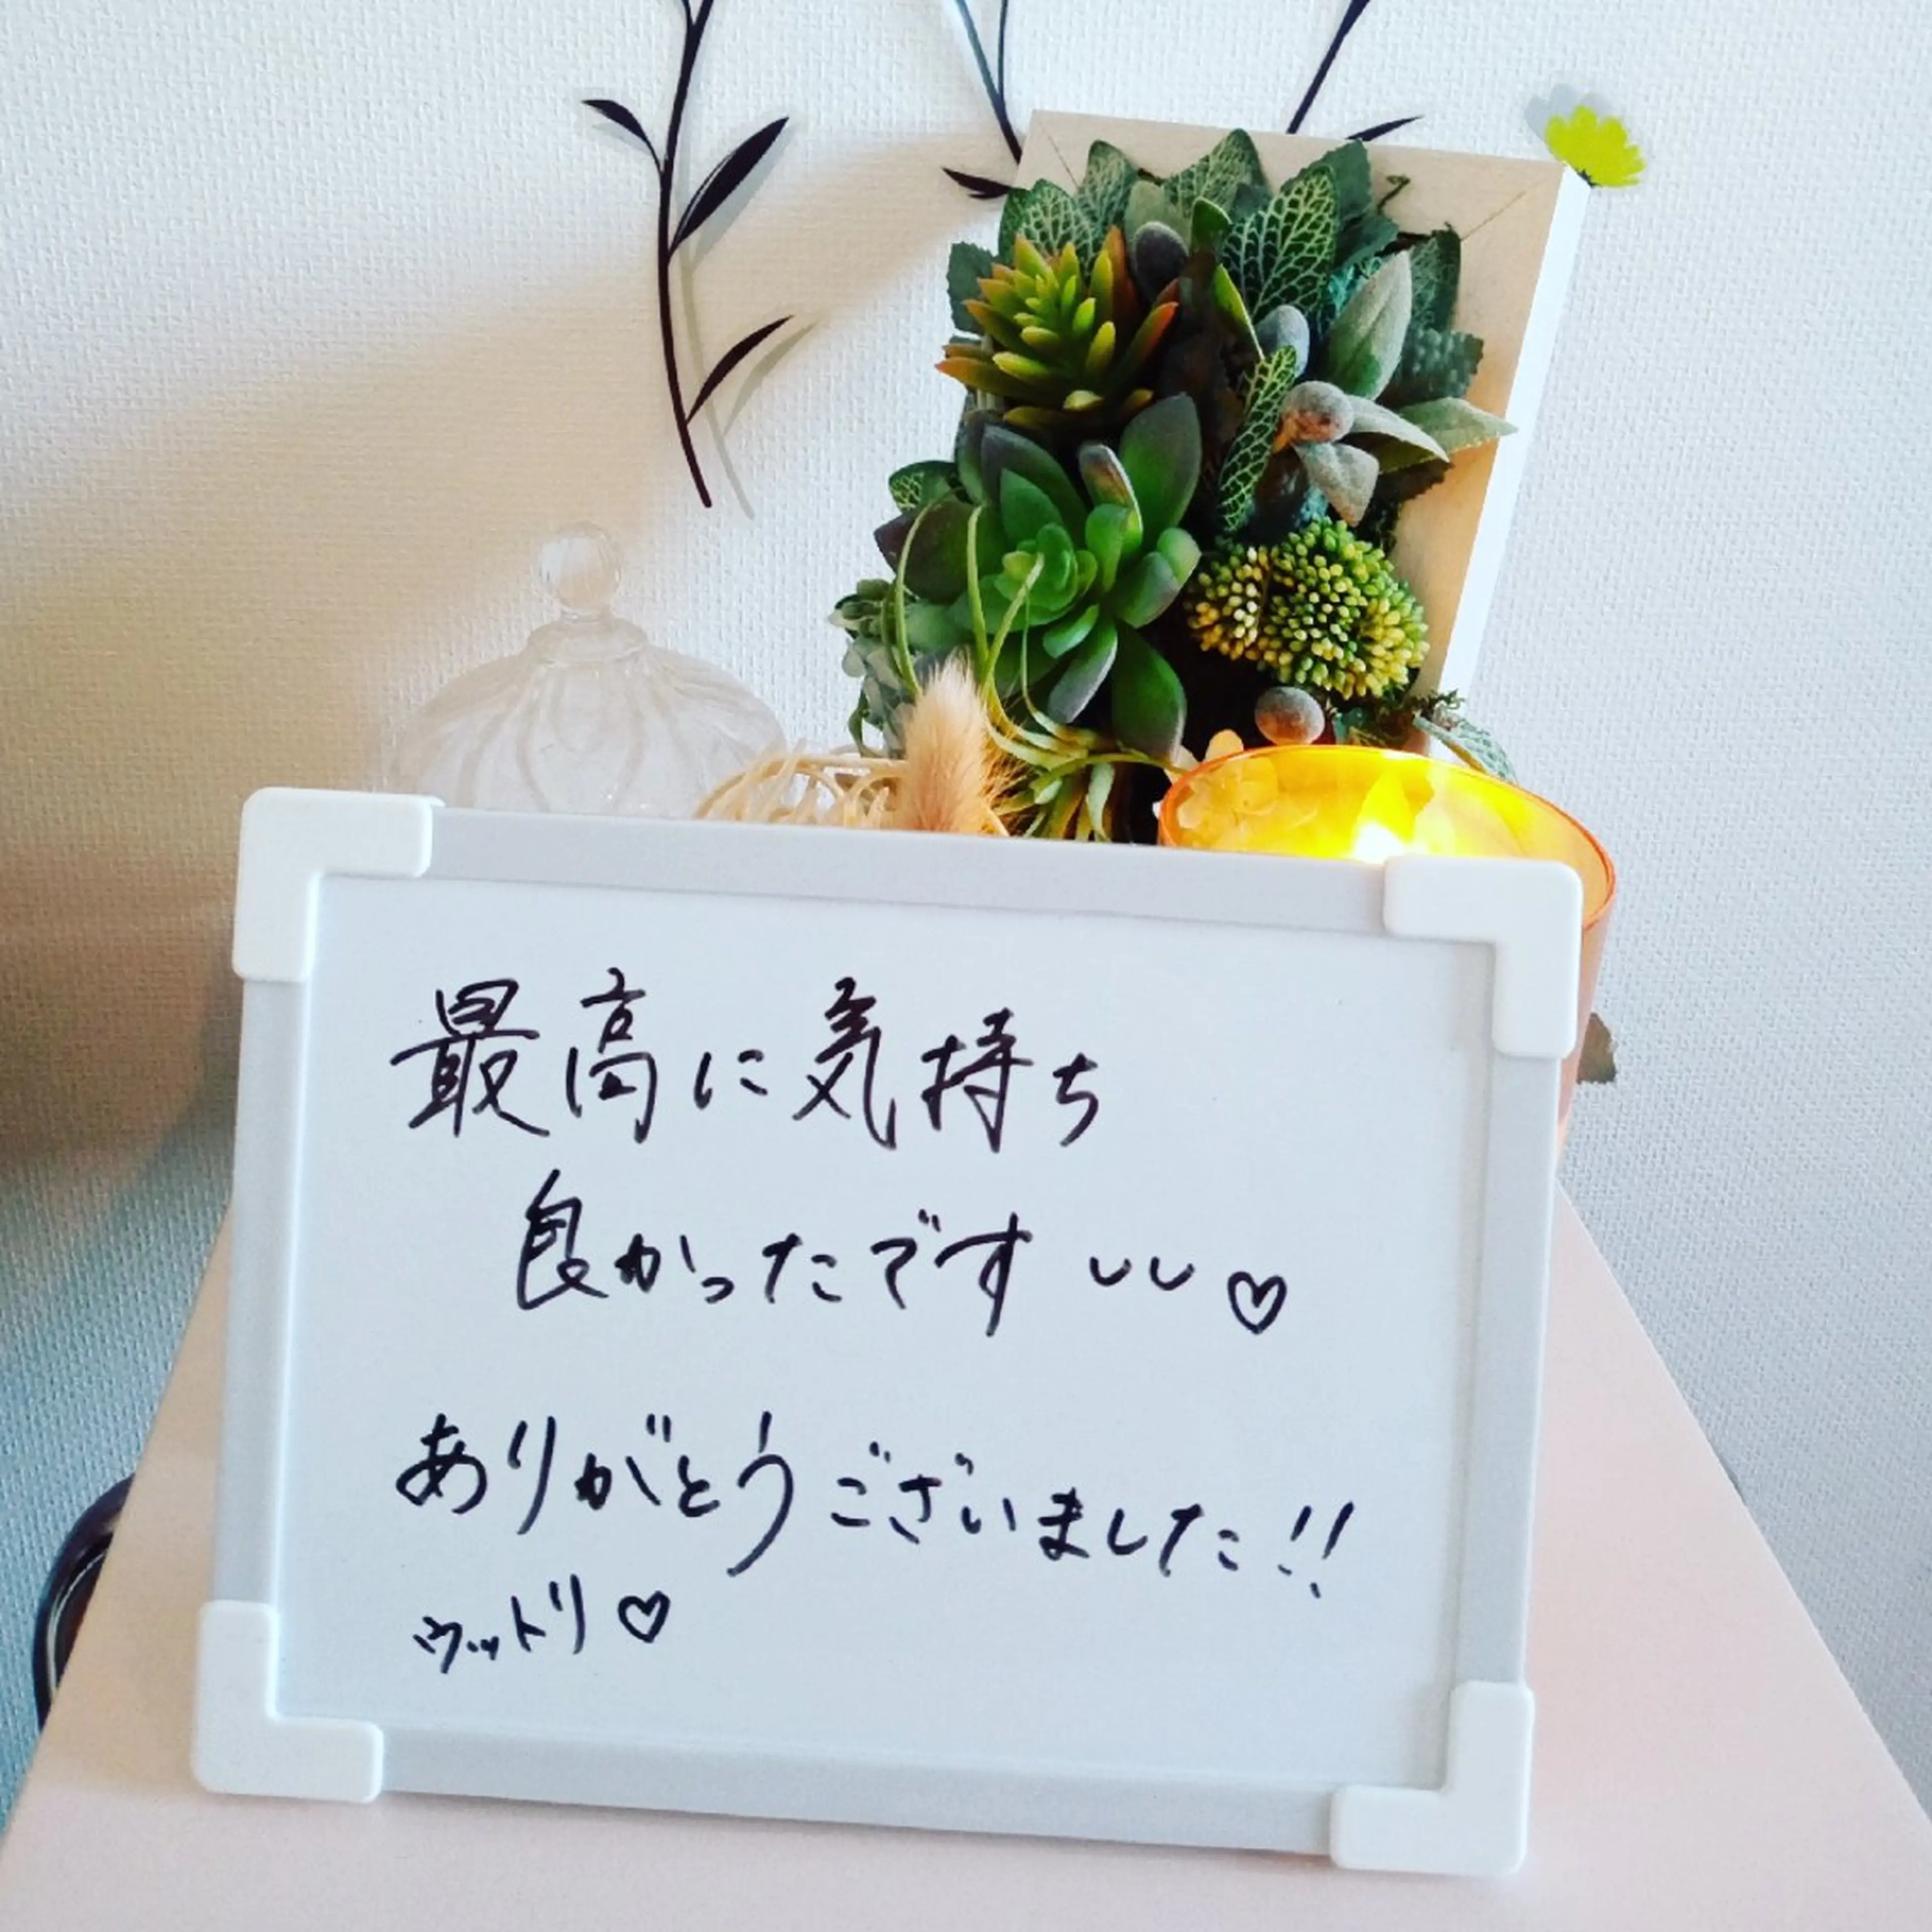 最高に気持ち
良かったです ◡◡ ♡
ありがとうございました!!
ウットリ ♡